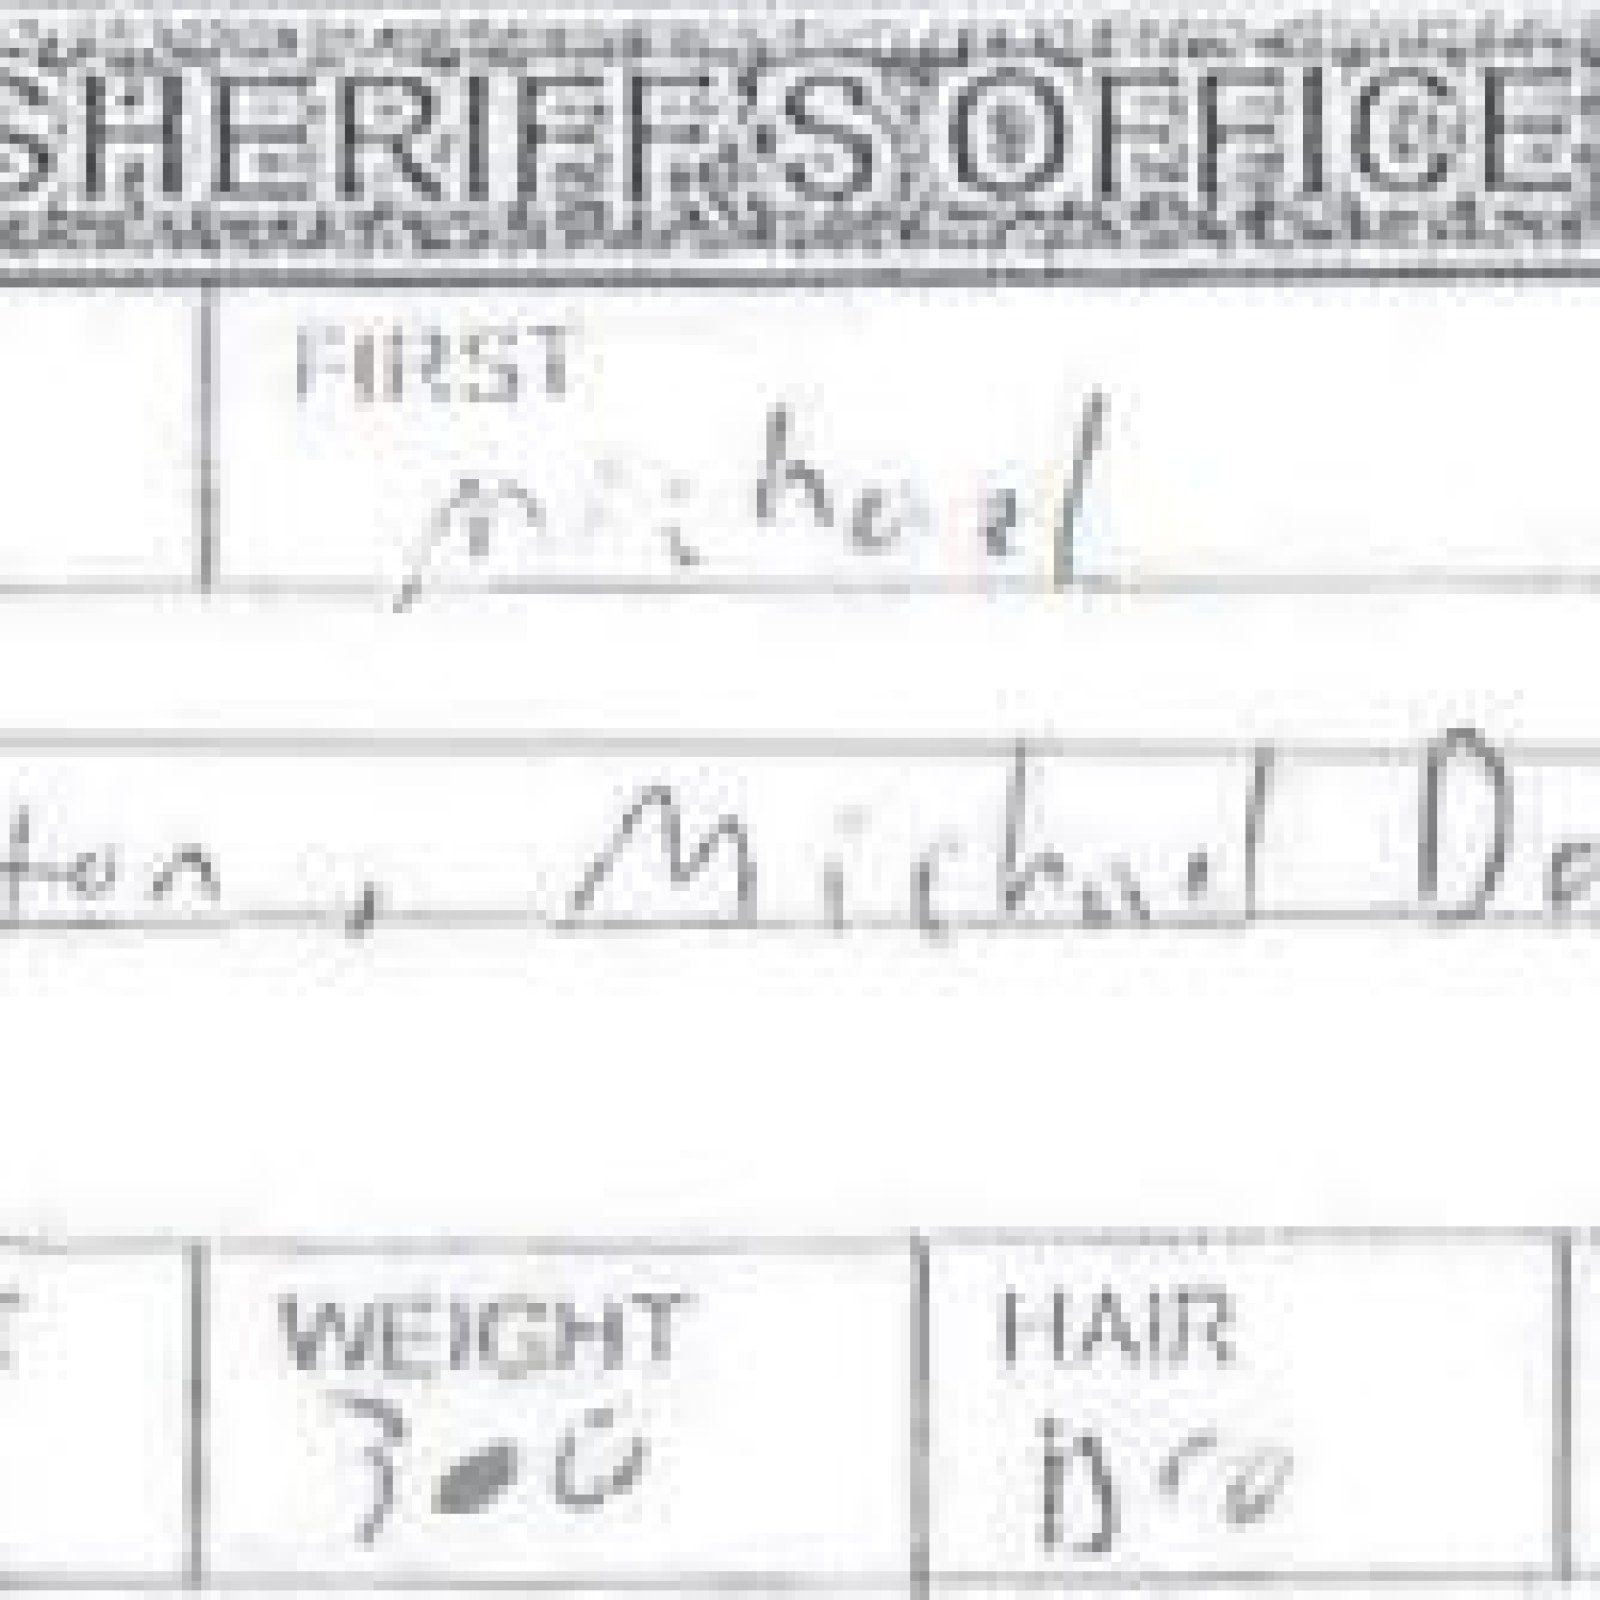 SHERIFF'S OFFICE
FIRST
Michael
ton, Michael Da
WEIGHT HAIR
300 Bro